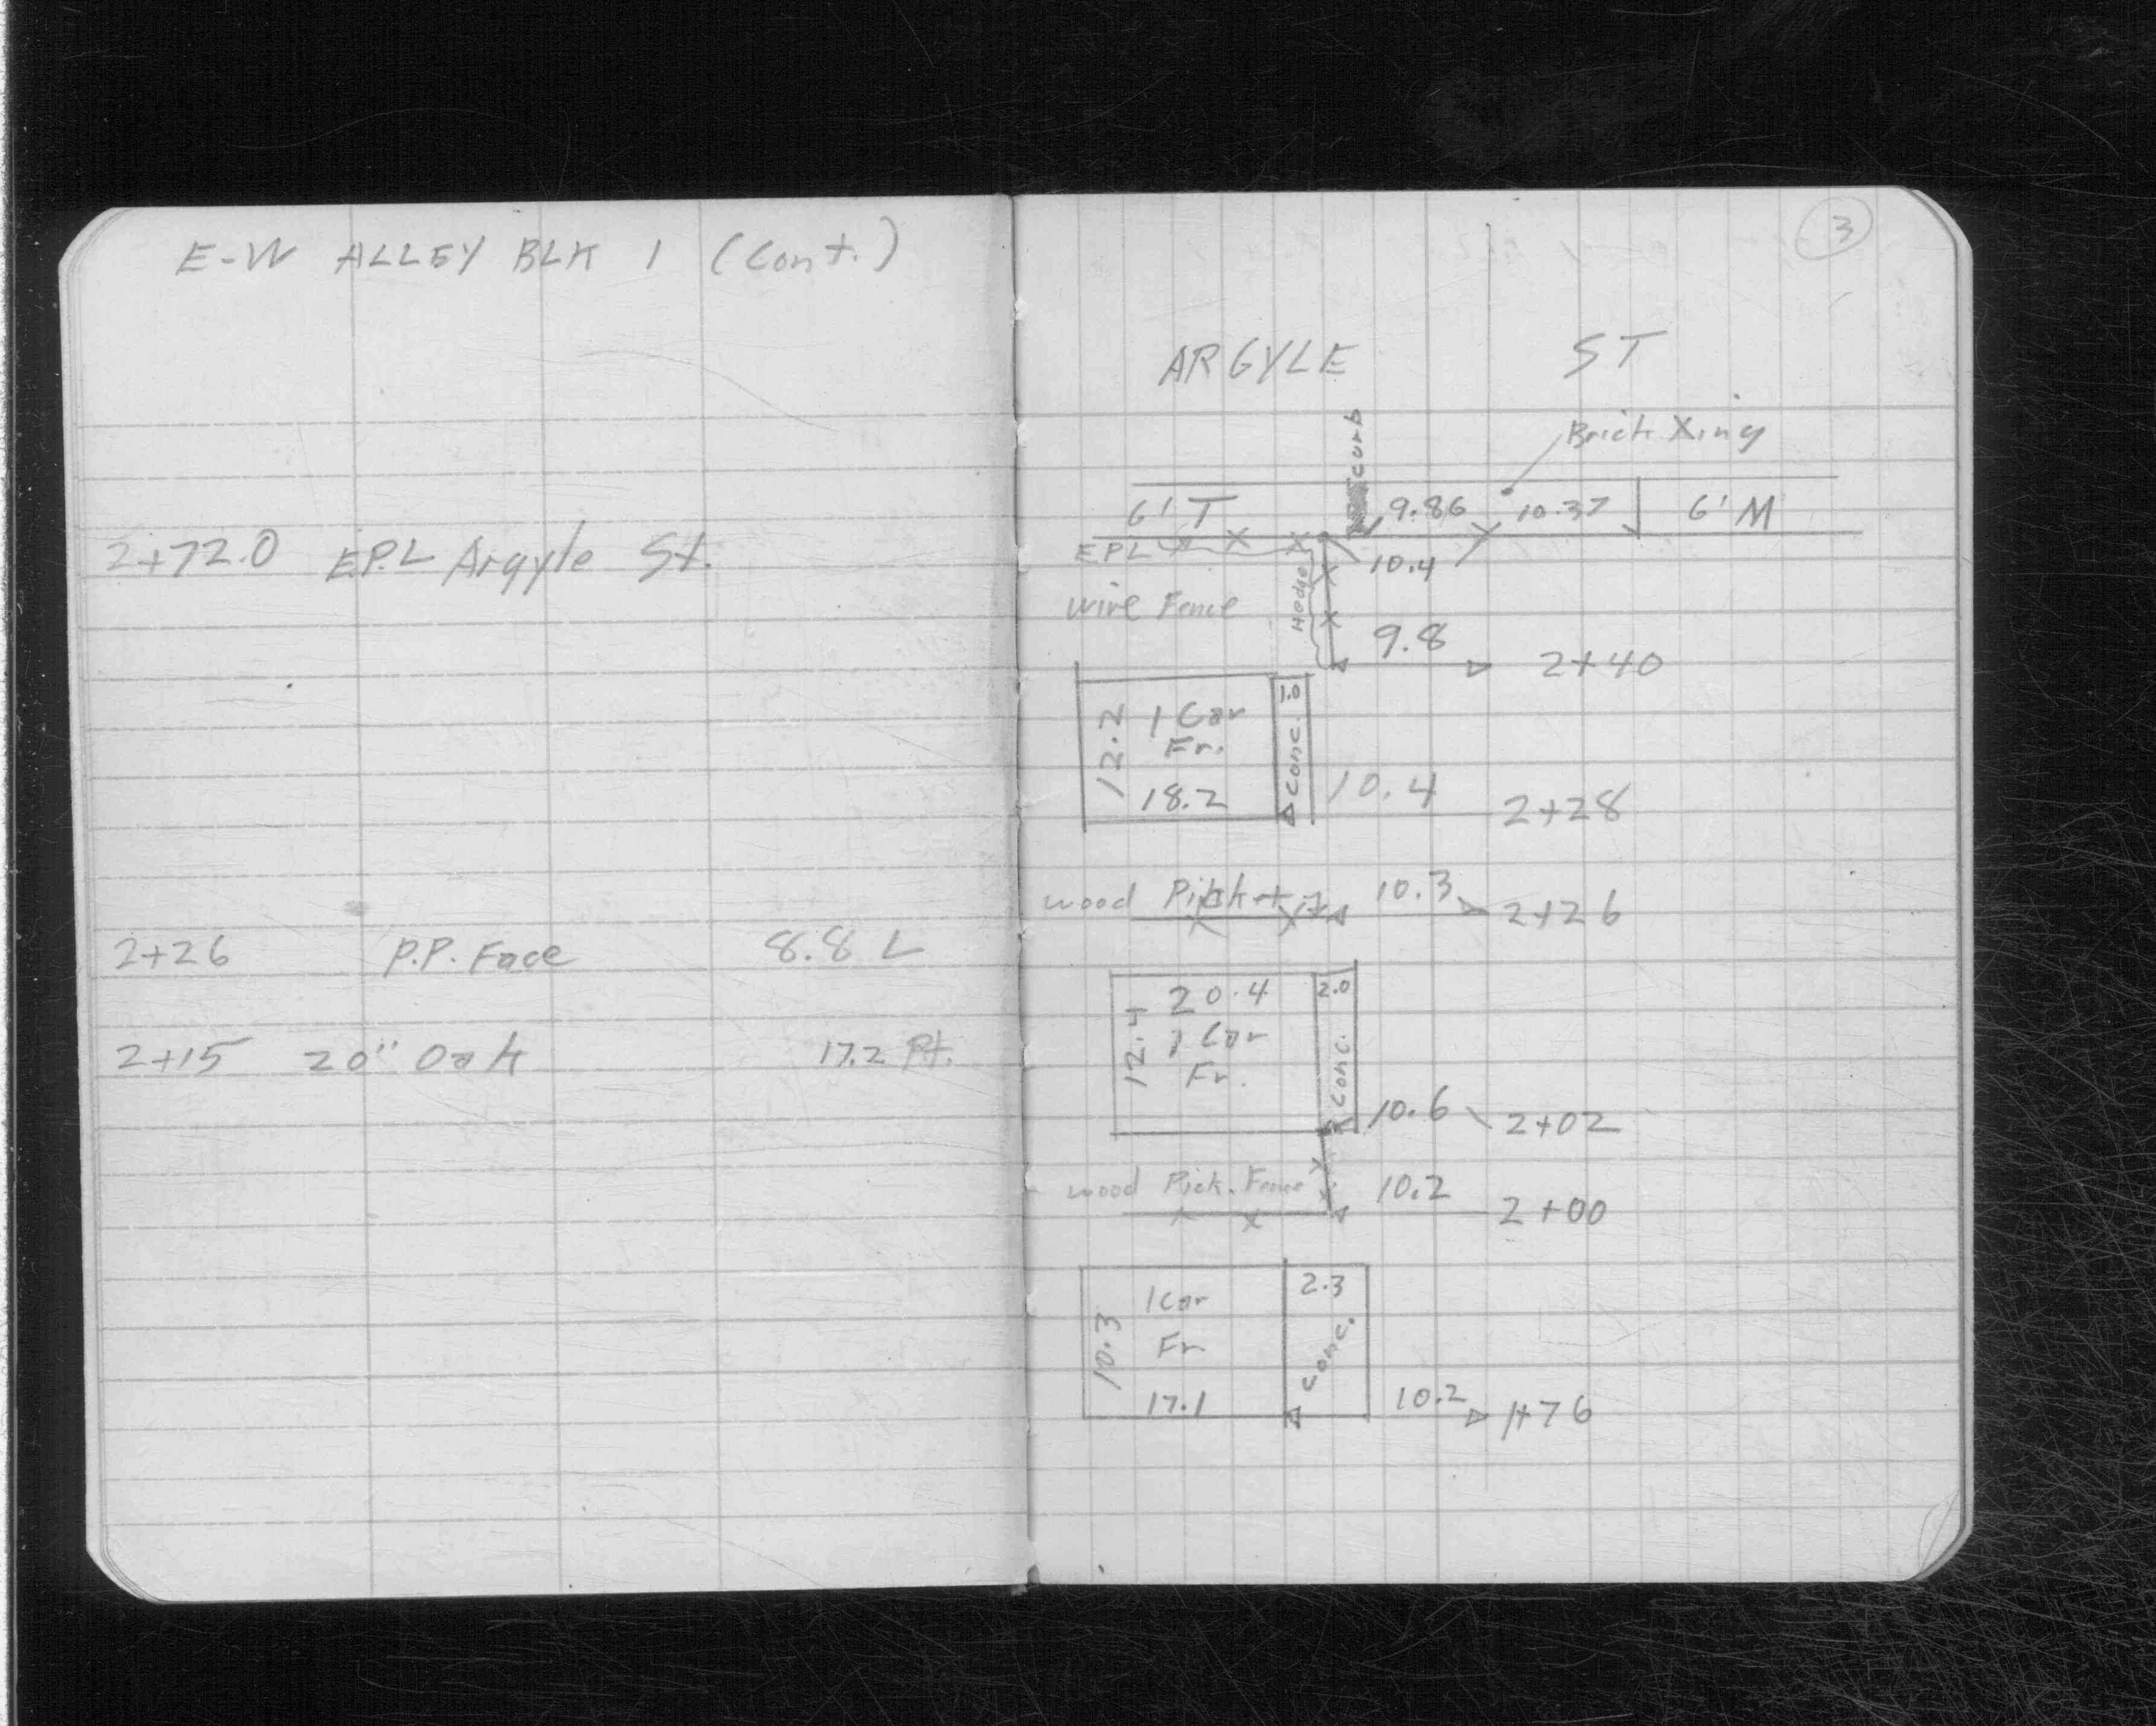 E-W ALLEY BLK 1 (Cont.)
2+72.0 E.P.L Argyle St.
2+26 P.P. Face 8.8 L
2+15 20" Oak 17.2 Rt.
3
ARGYLE ST
curb
Brick Xing
6' T 9.86 10.37 6' M
EPL 10.4
wire Fence Hedge
9.8 2+40
12.2 1 Car 1.0
Fr. Conc.
18.2 10.4 2+28
wood 10.3 2+26
20.4 2.0
12.4 1 Car Conc.
Fr.
10.6 2+02
wood Pick. Fence 10.2 2+00
1 Car 2.3
10.3 Fr. Conc.
17.1 10.2 1+76